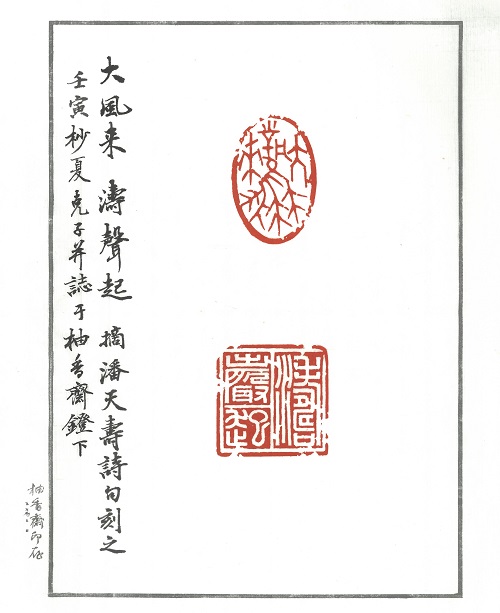 大風来 濤聲起 摘潘天壽詩句刻之
壬寅杪夏克子并誌于柚香齋鐙下
濤聲起
柚香齋印存